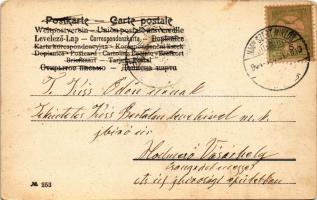 Postkarte — Carte postale
Weltpostverein — Union postale universelle
Levelező-Lap — Correspondenzkarte — Dopisnice
Karta korespondencyjna — Korespondenční lístek
Dopisnica — Postcard — Cartolina Postale — Brefkort
Briefkaart — Tarjeta Postal
Открытое письмо — Дописна карта
T. Kiss Edén úrnak
Tekintetes Kiss Bertalan kir.
jbiró úr
Hodmező Vásárhely
Csongrád megye
A kir. jbirósági épületben
№ 253